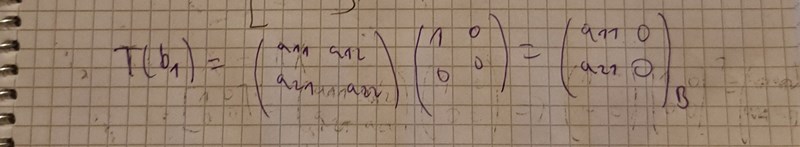 T(b₁) = (a₁₁ a₁₂ a₂₁ a₂₂) (1 0 0 0) = (a₁₁ 0 a₂₁ 0)_B